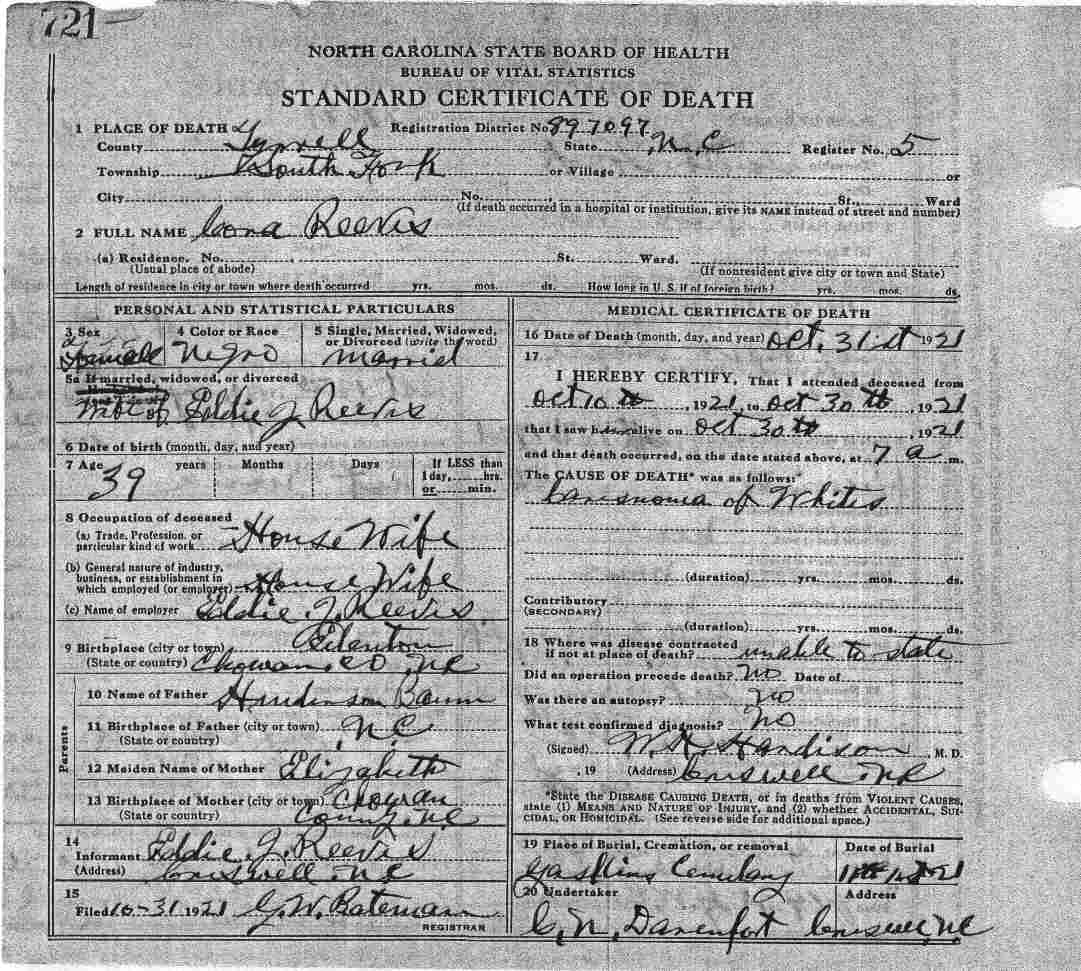 721
NORTH CAROLINA STATE BOARD OF HEALTH
BUREAU OF VITAL STATISTICS
STANDARD CERTIFICATE OF DEATH
1 PLACE OF DEATH Registration District No. 897097
County Tyrrell State N.C Register No. 5
Township South Fork or Village or
City No. St., Ward
(If death occurred in a hospital or institution, give its NAME instead of street and number)
2 FULL NAME Cora Reevis
(a) Residence. No. St. Ward.
(Usual place of abode) (If nonresident give city or town and State)
Length of residence in city or town where death occurred yrs. mos. ds. How long in U. S. if of foreign birth? yrs. mos. ds.
PERSONAL AND STATISTICAL PARTICULARS
3 Sex 4 Color or Race 5 Single, Married, Widowed, or Divorced (write the word)
Negro Married
5a If married, widowed, or divorced
Wife of Eddie J. Reevis
6 Date of birth (month, day, and year)
7 Age years Months Days If LESS than
1 day, hrs.
or min.
39
8 Occupation of deceased
(a) Trade, Profession, or
particular kind of work House Wife
(b) General nature of industry,
business, or establishment in
which employed (or employer) House Wife
(c) Name of employer Eddie J. Reevis
9 Birthplace (city or town) Edenton
(State or country) Chowan Co NC
Parents
10 Name of Father
11 Birthplace of Father (city or town) N.C
(State or country)
12 Maiden Name of Mother Elizabeth
13 Birthplace of Mother (city or town)
(State or country) County, NC
14
Informant Eddie J. Reevis
(Address) Creswell NC
15
Filed 10-31 1921 G.W. Bateman
REGISTRAR
MEDICAL CERTIFICATE OF DEATH
16 Date of Death (month, day, and year) Oct. 31st 1921
17
I HEREBY CERTIFY, That I attended deceased from
Oct 10th, 1921, to Oct 30th, 1921
that I saw h alive on Oct 30th, 1921
and that death occurred, on the date stated above, at 7 a m.
The CAUSE OF DEATH* was as follows:
of
(duration) yrs. mos. ds.
Contributory
(SECONDARY)
(duration) yrs. mos. ds.
18 Where was disease contracted
if not at place of death? unable to state
Did an operation precede death? No Date of
Was there an autopsy? No
What test confirmed diagnosis? No
(Signed) Hardison, M. D.
, 19 (Address) Creswell NC
*State the DISEASE CAUSING DEATH, or in deaths from VIOLENT CAUSES,
state (1) MEANS AND NATURE OF INJURY, and (2) whether ACCIDENTAL, SUI-
CIDAL, OR HOMICIDAL. (See reverse side for additional space.)
19 Place of Burial, Cremation, or removal Date of Burial
Gaskins Cemetary
20 Undertaker Address
C. N. Davenport Creswell, NC